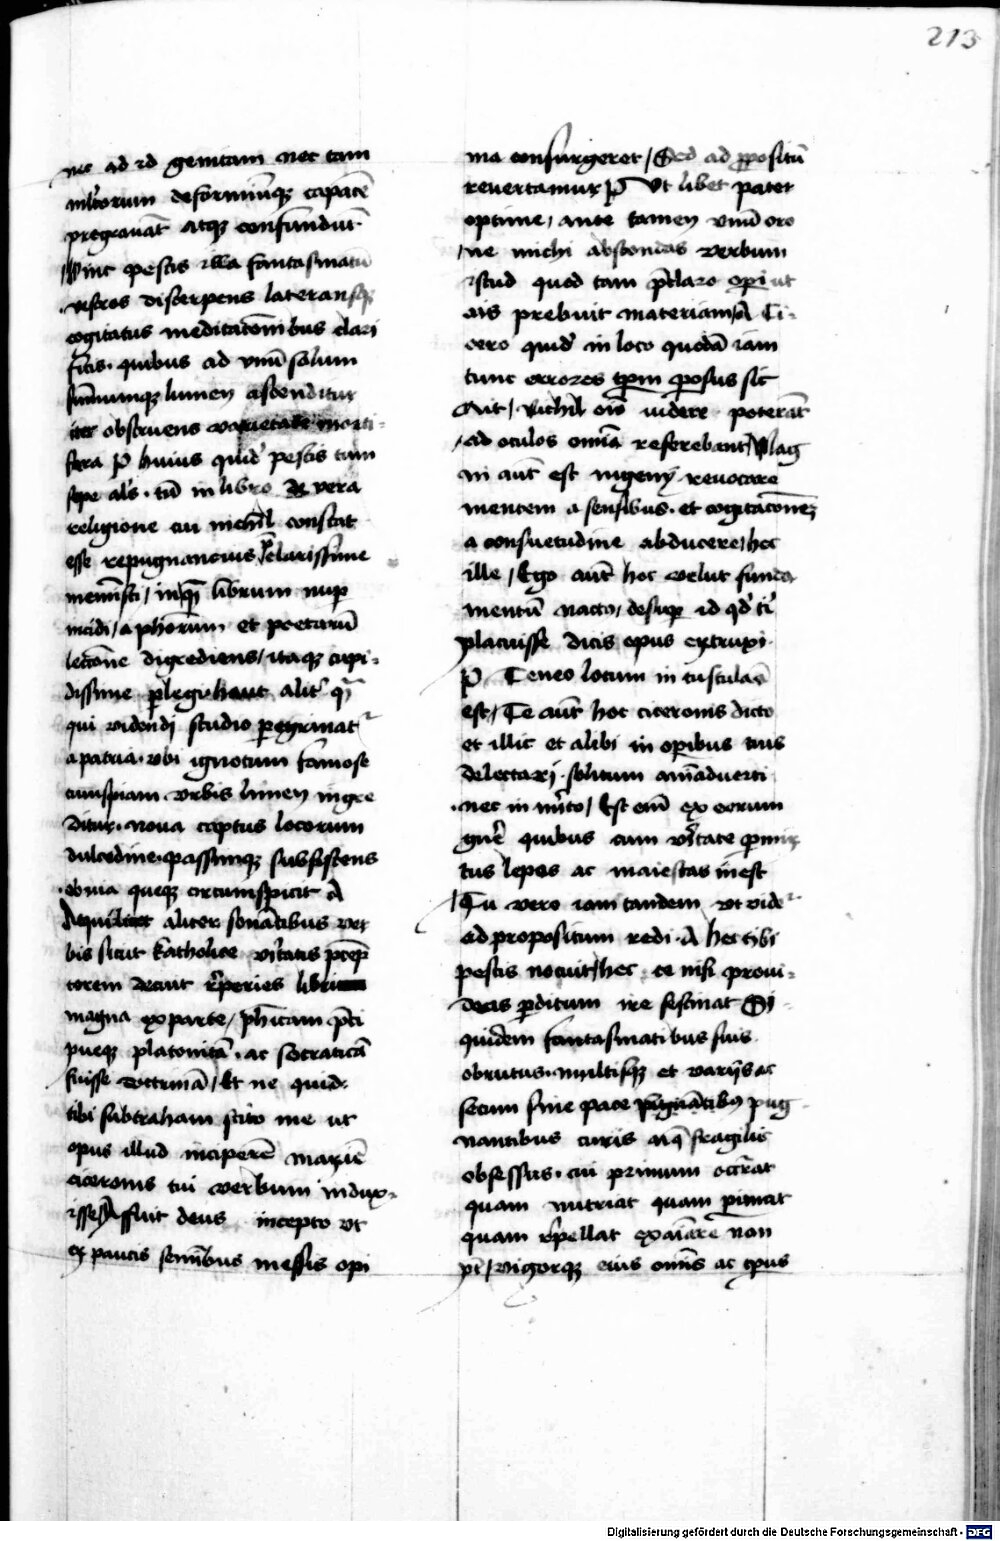 213
nec ad id genitam nec tam
mltorum deformiumqꝫ capacē
pregrauāt atqꝫ confundūt
Hinc pestis illa fantasmatū
vestros discerpens laceransqꝫ
cogitatus meditacōnibus clari
ficis · quibus ad vnū solum
sūmumqꝫ lumen ascenditur
iter obstruens varietate morti-
fera P huius quidē pestis cum
sepe als · tū in libro de vera
religione cui nichil constat
esse repugnancius p̄clarissime
meministi / in quē librum nuper
incidi / a ph̄orum et poetarū
lectōne digrediens / itaqꝫ cupi-
dissime perlegi · haut alit̄ qm̄
qui videndi studio peregrinat̄
a patria · vbi ignotum famose
cuiuspiam vrbis limen ingre
ditur · noua captus locorum
dulcedine · passimqꝫ subsistens
obuia queqꝫ circumspicit A
Atqui licet aliter sonātibus ver
bis sicut katholice vītatis p̄cep
torem decuit rep̄eries libri
magna ex parte / ph̄icam p̄ci
pueqꝫ platonicā · ac socraticā
fuisse doctrinā / Et ne quid
tibi subtraham scito me vt
opus illud inciperē maxīe
ciceronis tui verbum indux-
isse Affuit deus incepto vt
ex paucis semībus messis opi
ma consurgeret / Sed ad p̄positū
reuertamur P Vt libet pater
optime / ante tamen vnū oro
/ ne michi abscondas verbum
istud quod tam p̄claro operi ut
ais prebuit materiam A Ci-
cero quidē in loco quodā iam
tunc errores tp̄m perosus sic
Ait / Nichil aīo videre poterāt
/ ad oculos omīa referebant / Mag
ni aūt est ingenij reuocare
mentem a sensibus · et cogitacōnem
a consuetudine abducere / hec
ille / Ego aūt hoc velut funda
mentū nactus / desuper id qd̄ ti
placuisse dicis opus extruxi
P Teneo locum in tusculan̄
est / Te aūt hoc ciceronis dicto
et illic et alibi in operibus tuis
delectari · solitum aīaduerti
· nec in īmerito / Est enī ex eorum
gn̄e quibus cum vītate permix
tus lepos ac maiestas inest
/ Tu vero iam tandem vt videt̄
ad propositum redi · A hec tibi
pestis nocuit / hec te nisi proui-
deas perditum ire festinat Si
quidem fantasmatibus suis
obrutus · multisqꝫ et varijs ac
secum sine pace pugnātibꝫ pug
nantibus curis aīs fragilis
obsessus · cui primum occurrat
quam nutriat quam perimat
quam repellat examinare non
pōt / vigorqꝫ eius omīs ac tp̄us
Digitalisierung gefördert durch die Deutsche Forschungsgemeinschaft - DFG